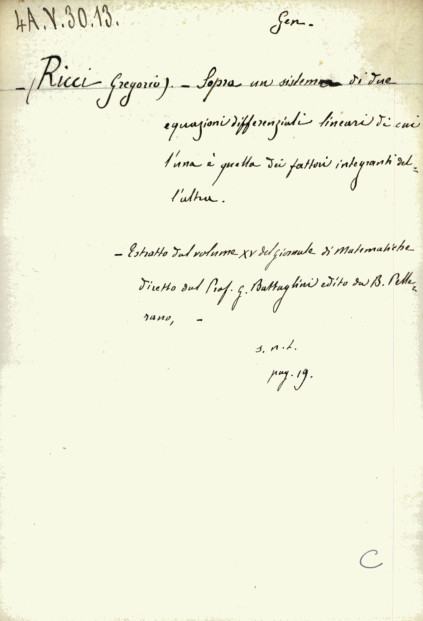 4A.V.30.13.
Gen.
(Ricci Gregorio). - Sopra un sistema di due
equazioni differenziali lineari di cui
l'una è quella dei fattori integranti del=
l'altra.
- Estratto dal volume XV del giornale di Matematiche
diretto dal Prof. G. Battaglini edito da B. Pelle=
rano, -
s. n. t.
pag. 19.
C